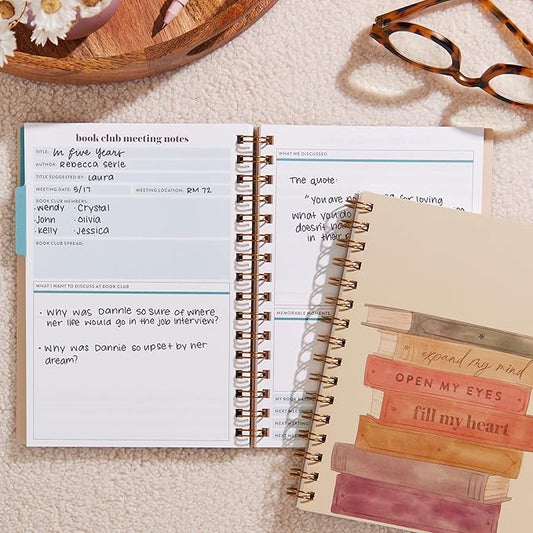 book club meeting notes
TITLE: In Five Years
AUTHOR: Rebecca Serle
TITLE SUGGESTED BY: Laura
MEETING DATE: 5/17 MEETING LOCATION: RM 72
BOOK CLUB MEMBERS:
·Wendy ·Crystal
·John ·Olivia
·Kelly ·Jessica
BOOK CLUB SPREAD:
WHAT I WANT TO DISCUSS AT BOOK CLUB
• Why was Dannie so sure of where
her life would go in the job interview?
• Why was Dannie so upset by her
dream?
WHAT WE DISCUSSED
The quote:
"You are no for loving
what you do
doesn't ha
in their p
MEMORABLE MOMENTS
MY BOOK
NEXT MEETING
NEXT MEETING
NEXT MEETING
expand my mind
OPEN MY EYES
fill my heart